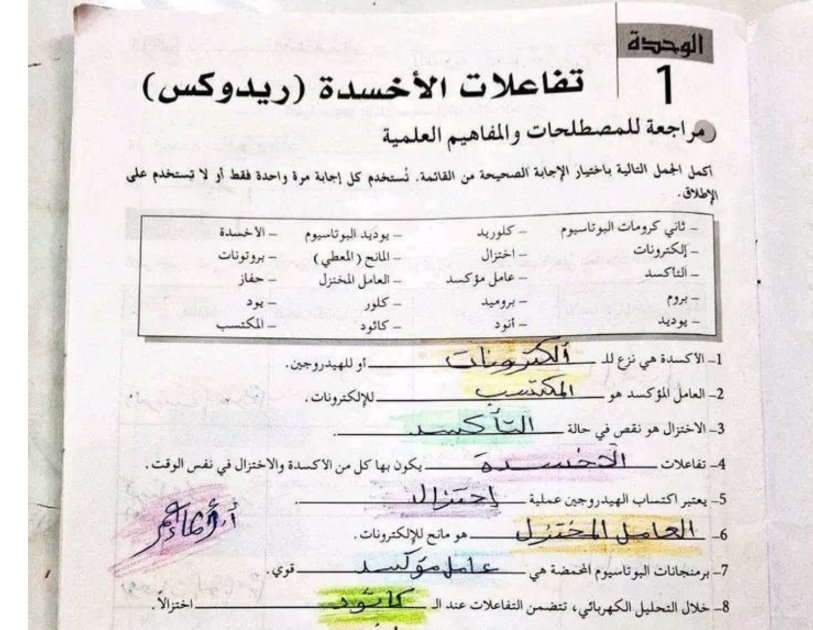 الوحدة
1
تفاعلات الأخسدة (ريدوكس)
مراجعة للمصطلحات والمفاهيم العلمية
أكمل الجمل التالية باختيار الإجابة الصحيحة من القائمة. تُستخدم كل إجابة مرة واحدة فقط أو لا تستخدم على
الإطلاق.
– ثاني كرومات البوتاسيوم – كلوريد – يوديد البوتاسيوم – الأخسدة
– إلكترونات – اختزال – المانح (المعطي) – بروتونات
– التأكسد – عامل مؤكسد – العامل المختزل – حفاز
– بروم – بروميد – كلور – يود
– يوديد – أنود – كاثود – المكتسب
1– الأكسدة هي نزع للـ ألكترونات أو للهيدروجين.
2– العامل المؤكسد هو المكتسب للإلكترونات.
3– الاختزال هو نقص في حالة التأكسد.
4– تفاعلات الأخسدة يكون بها كل من الأكسدة والاختزال في نفس الوقت.
5– يعتبر اكتساب الهيدروجين عملية إختزال.
6– العامل المختزل هو مانح للإلكترونات.
7– برمنجانات البوتاسيوم المحمضة هي عامل مؤكسد قوي.
8– خلال التحليل الكهربائي، تتضمن التفاعلات عند الـ كاثود اختزالاً.